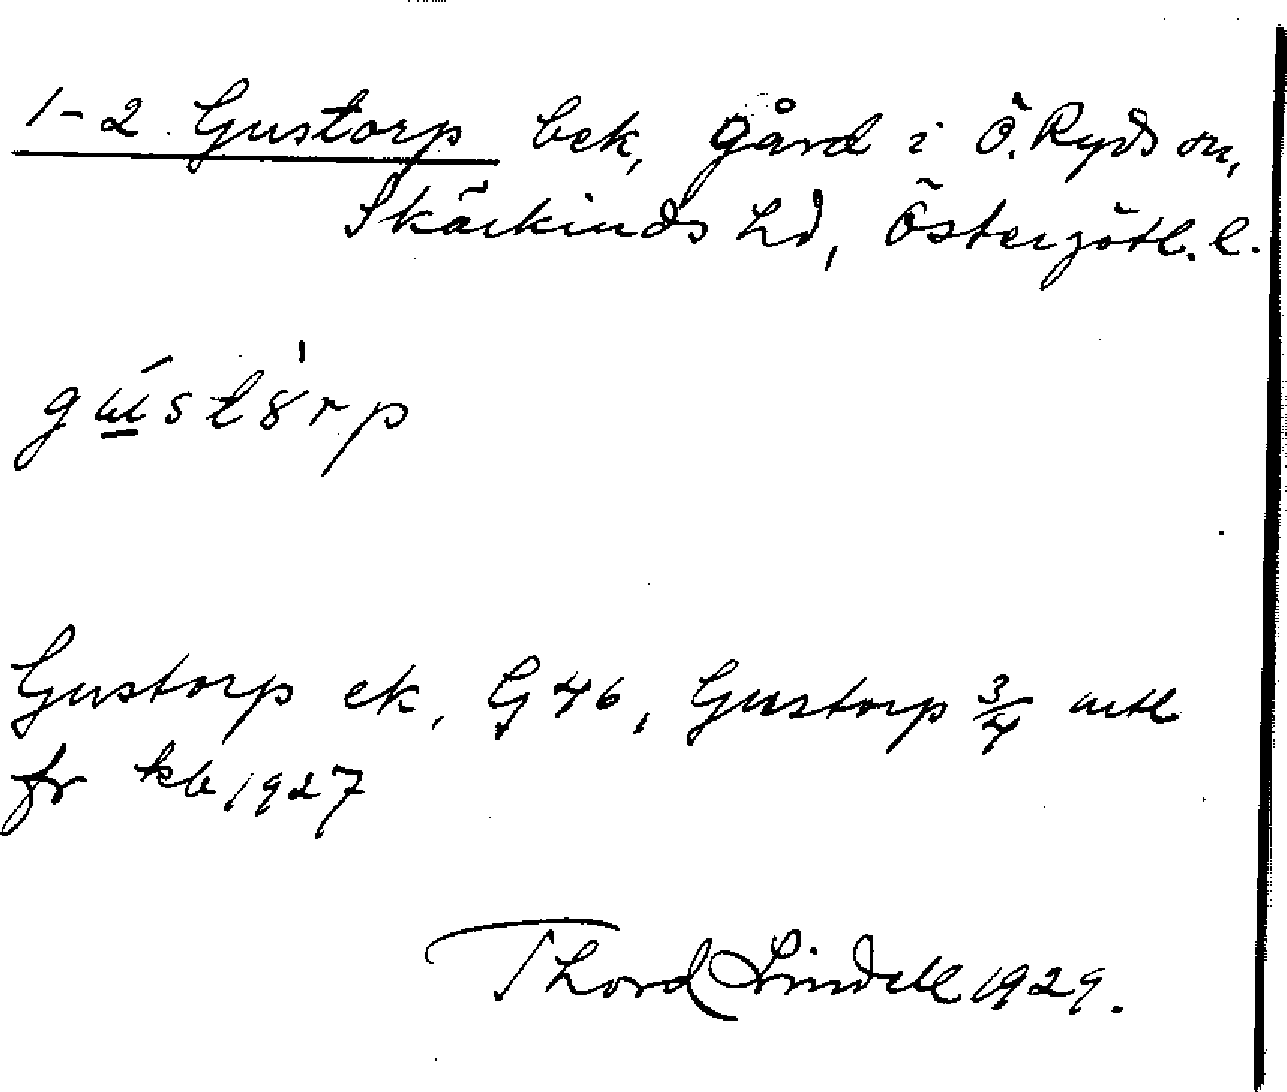 1-2 Gustorp bek, gård i Ö. Ryds sn,
Skärkinds hd, Östergötl. l.
gústȣ̍rp
Gustorp ek, G 46, Gustorp 3/4 mtl
fr kb 1927
Thord Lindell 1929.